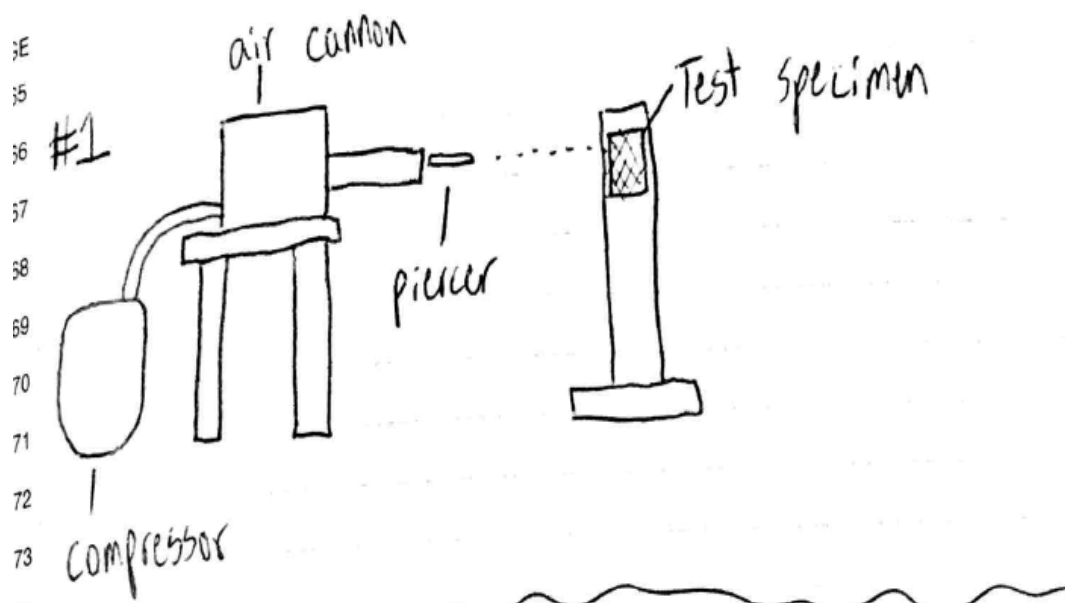 air cannon
Test specimen
#1
piercer
compressor
65
66
67
68
69
70
71
72
73